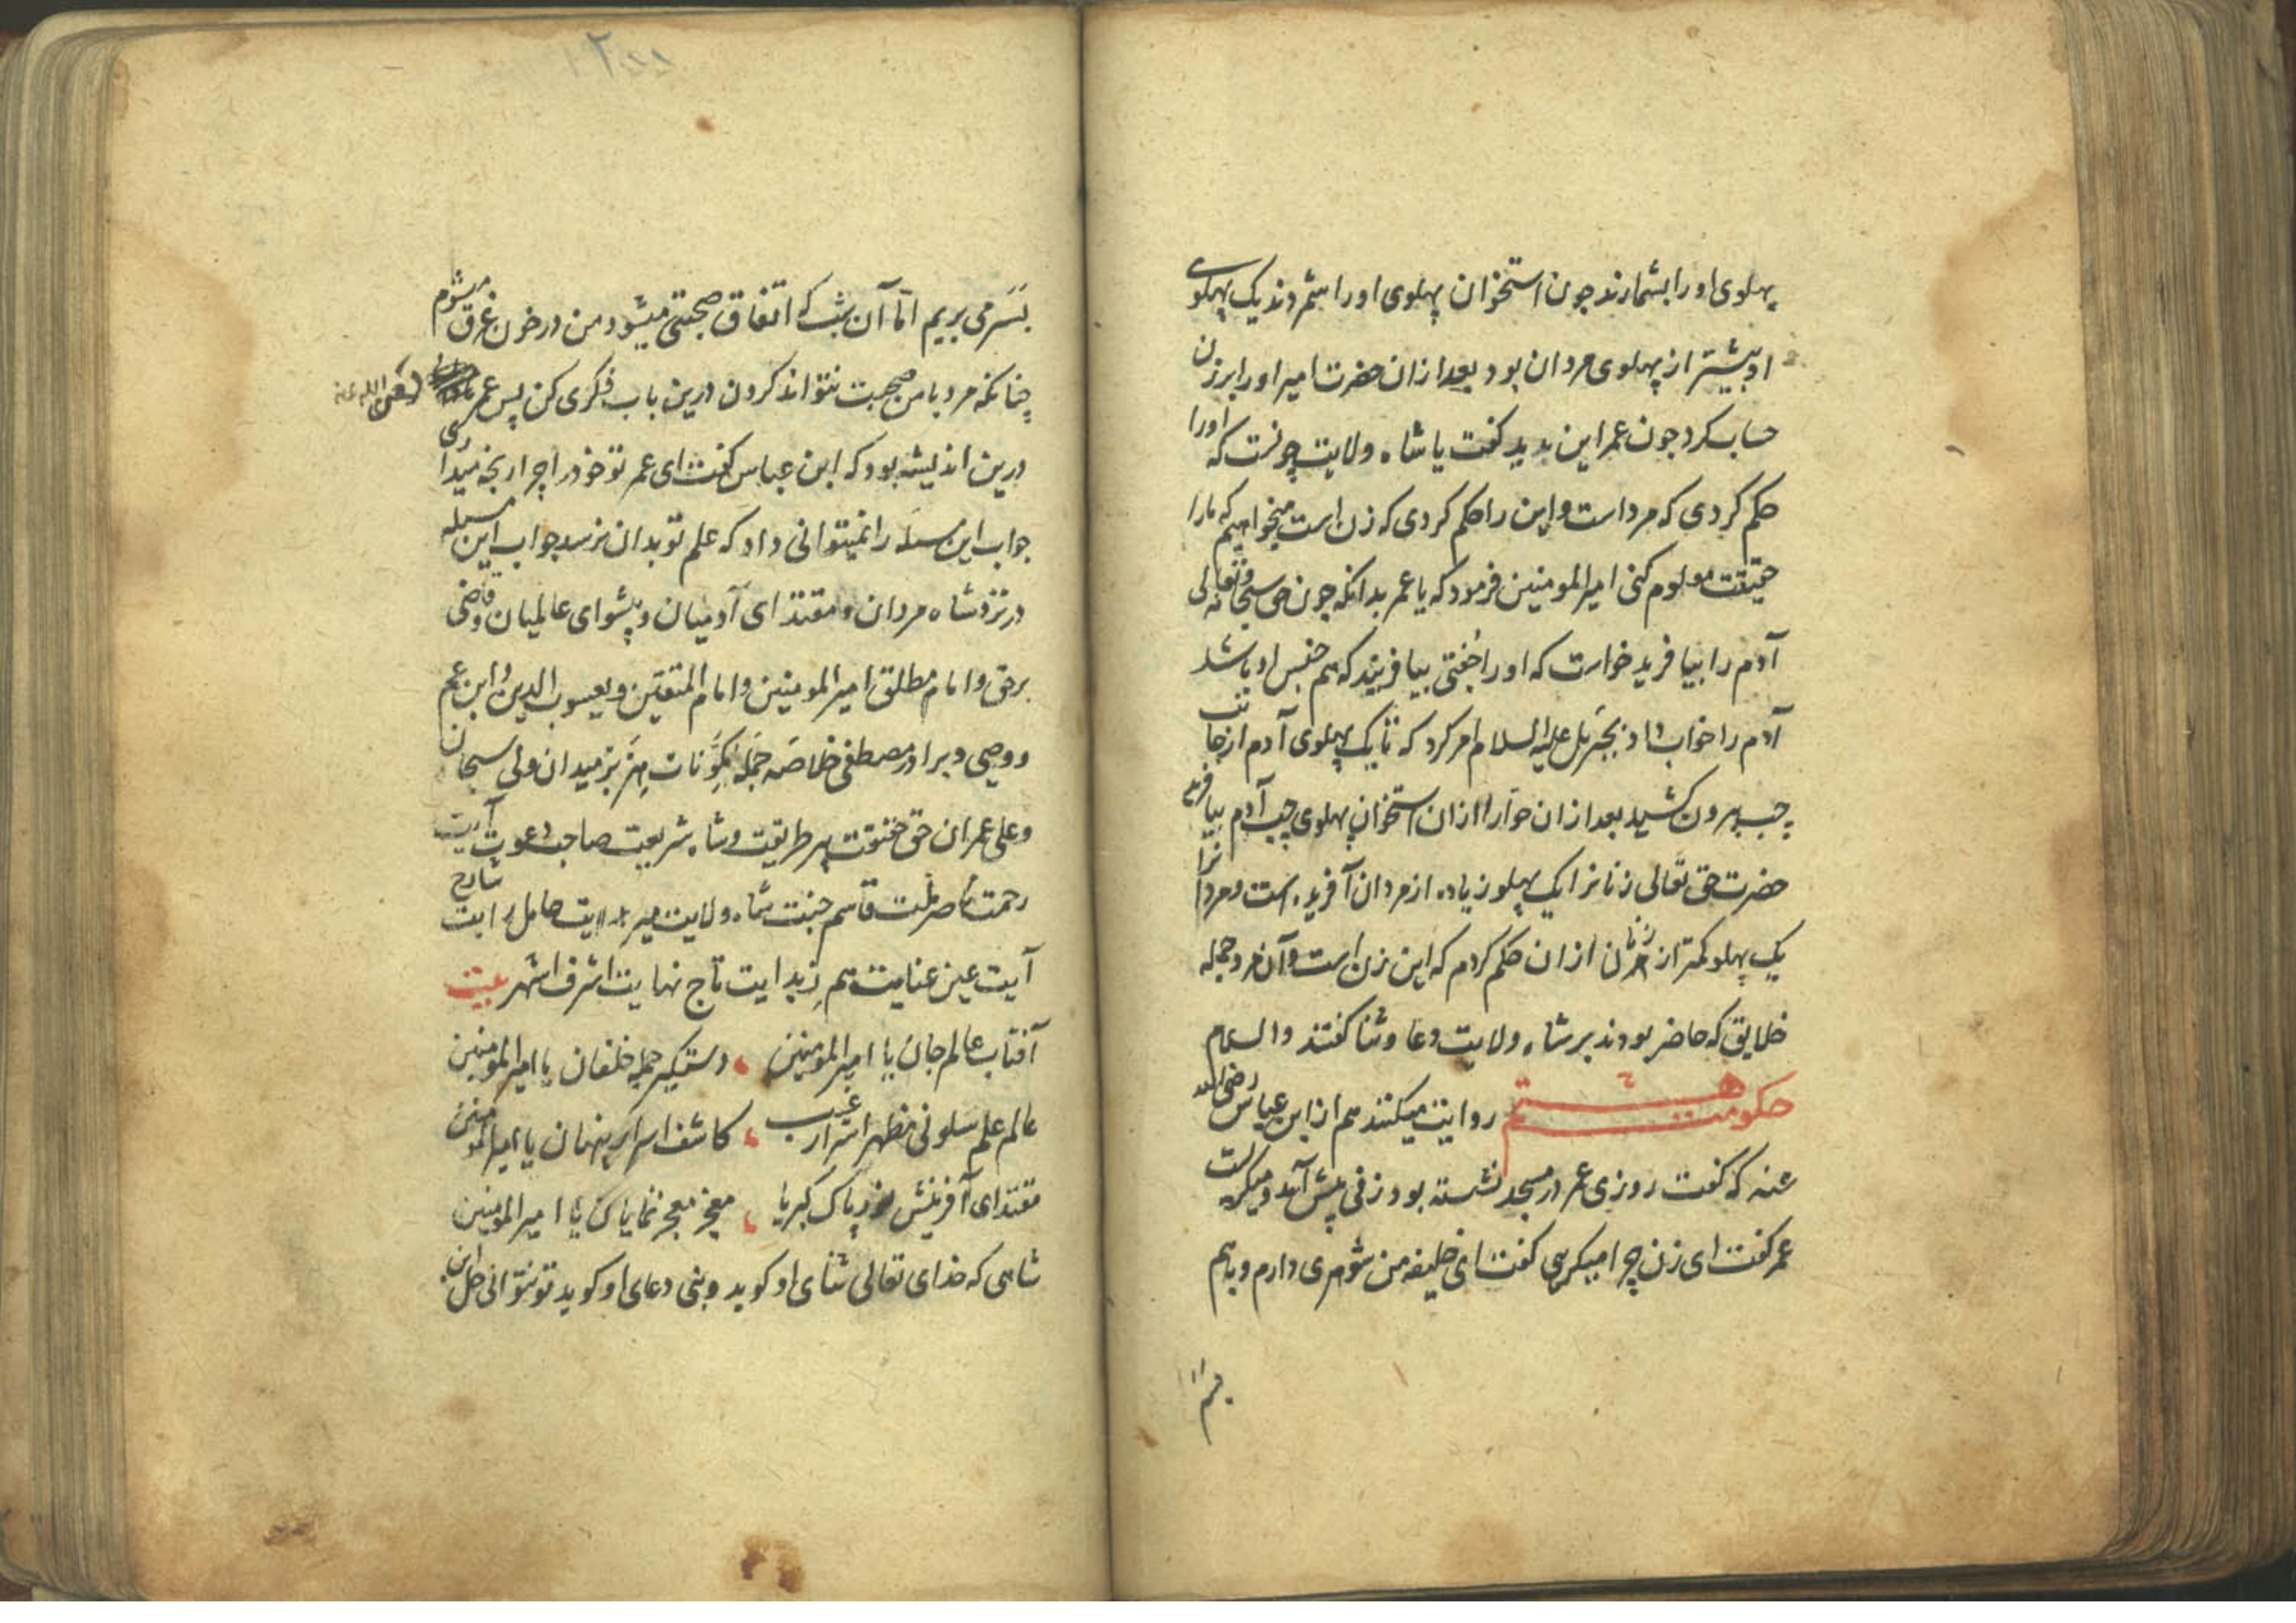 پهلوی او را بشمارند چون استخوان پهلوی او را شمردند یک پهلوی
او بیشتر از پهلوی مردان بود بعد ازان حضرت امیر او را بر زن
حساب کرد چون عمر این بدید کفت یا شاه ولایت چونست که او را
حکم کردی که مرد است و این را حکم کردی که زن است میخواهیم که ما را
حقیقت معلوم کنی امیر المومنین فرمود که یا عمر بدانکه چون حق سبحانه و تعالی
آدم را بیافرید خواست که او را جفتی بیافریند که هم جنس او باشد
آدم را خواب داد بجبرئیل علیه السلام امر کرد که تا یک پهلوی آدم از جانب
چپ بیرون کشید بعد ازان حوا را ازان استخوان پهلوی چپ آدم بیافرید
حضرت حق تعالی زنانرا یک پهلو زیاده از مردان آفریده است و مردانرا
یک پهلو کمتر از زنان ازان حکم کردم که این زن است و آن مرد جمله
خلایق که حاضر بودند بر شاه ولایت دعا و ثنا کفتند والسلام
حکومت هشتم روایت میکنند هم از ابن عباس رضی الله
عنه که کفت روزی عمر در مسجد نشسته بود زنی پیش آمد و میکریست
عمر کفت ای زن چرا میکریی کفت ای خلیفه من شوهری دارم و باهم
بسر می بریم اما آن شب که اتفاق صحبتی میشود من در خون غرق میشوم
چنانکه مرد با من صحبت نتواند کردن درین باب فکری کن پس عمر رضی الله عنه
درین اندیشه بود که ابن عباس کفت ای عمر تو خود را چرا رنجه میداری
جواب این مسله را نمیتوانی داد که علم تو بدان نرسد جواب این مسله
در نزد شاه مردان و مقتدای آدمیان و پیشوای عالمیان و قاضی
برحق و امام مطلق امیر المومنین و امام المتقین و یعسوب الدین و ابن عم
و وصی و برادر مصطفی خلاصه جمله مکونات هزبر میدان ولی سبحان
و علی عمران حق حقیقت پیر طریقت و شاه شریعت صاحب دعوت آیت
رحمت ناصر ملت قاسم جنت شاه ولایت میر هدایت حامل رایت شارح
آیت عین عنایت هم بدایت تاج نهایت اشرف اشهر بیت
آفتاب عالم جان یا امیر المومنین دستکیر جمله خلقان یا امیر المومنین
عالم علم سلونی مظهر اسرار غیب کاشف اسرار پنهان یا امیر المومنین
مقتدای آفرینش نور پاک کبریا معجز معجز نمایان یا امیر المومنین
شاهی که خدای تعالی ثنای او کوید و نبی دعای او کوید تو نتوانی حل این